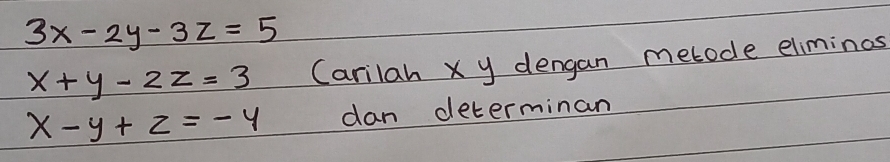 3x - 2y - 3z = 5
x + y - 2z = 3 Carilah x y dengan metode eliminas
x - y + z = -4 dan determinan